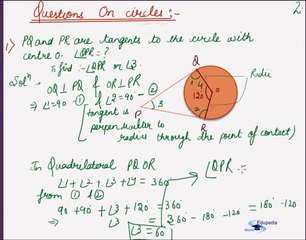 Questions On circles:-
2
1) PQ and PR are tangents to the circle with
centre O. ∠QPR = ?
To find :- ∠QPR or ∠3.
Solⁿ
OQ ⊥ PQ & OR ⊥ PR
⇒ ∠1 = 90 - ① & ∠2 = 90 - ②
{tangent is
perpendicular to
radius through the point of contact)
Q
Radii
1
4
O
120
P
3
2
R
In Quadrilateral PQOR
∠1 + ∠2 + ∠3 + ∠4 = 360
from ① & ②
90 + 90 + ∠3 + 120 = 360
⇒ ∠3 = 360 - 180 - 120 = 180 - 120
∠3 = 60
∠QPR
Edupedia